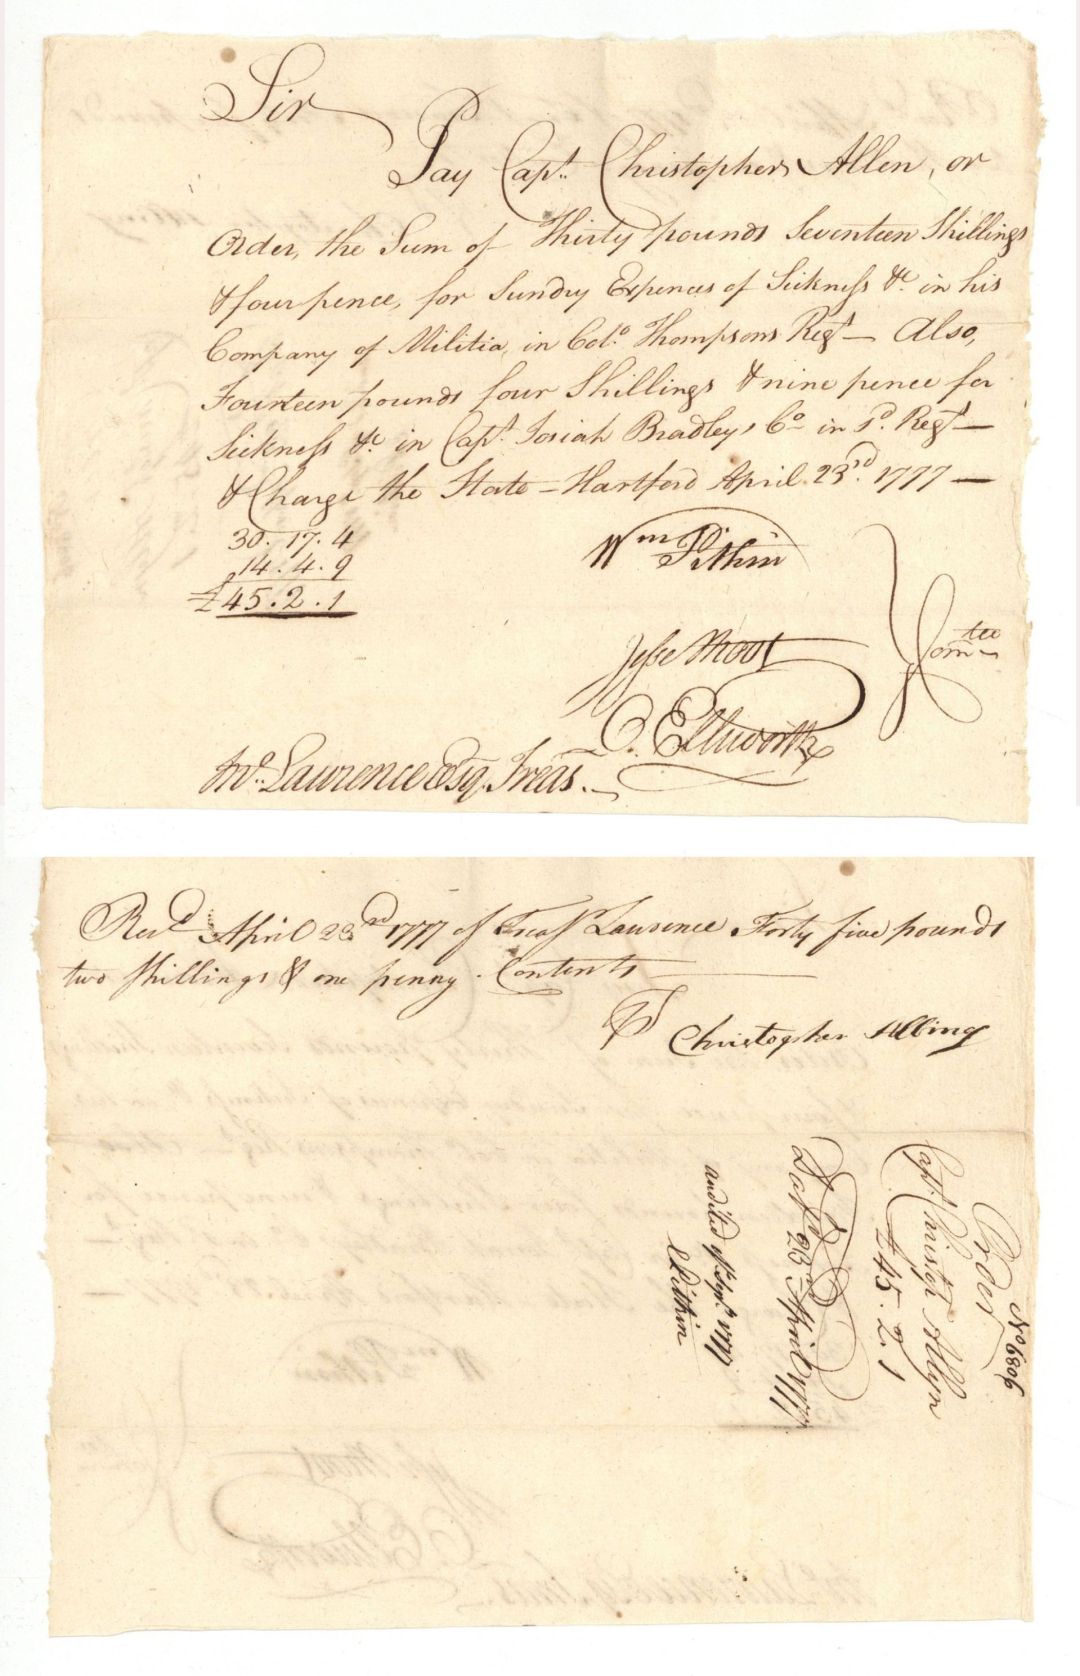 Sir
Pay Capt. Christopher Allen, or
Order, the Sum of Thirty pounds Seventeen Shillings
& four pence, for Sundry Expences of Sickness &c in his
Company of Militia, in Colo. Thompsons Regt — Also,
Fourteen pounds four Shillings & nine pence for
Sickness &c in Capt. Josiah Bradleys Co in sd. Regt —
& Charge the State — Hartford April 23rd. 1777 —
30. 17. 4
14. 4. 9
£45. 2. 1
Wm Pitkin
Jesse Root
O. Ellsworth
Comtee
Jno. Lawrence Esq. Treasr.
Recd April 23rd 1777 of Treasr Lawrence Forty five pounds
two shillings & one penny. Contents
Christopher Alling
No 6806
Order
Capt. Christopr Allyn
£45. 2. 1
Datd
23rd April 1777
audited 1777
Pitkin